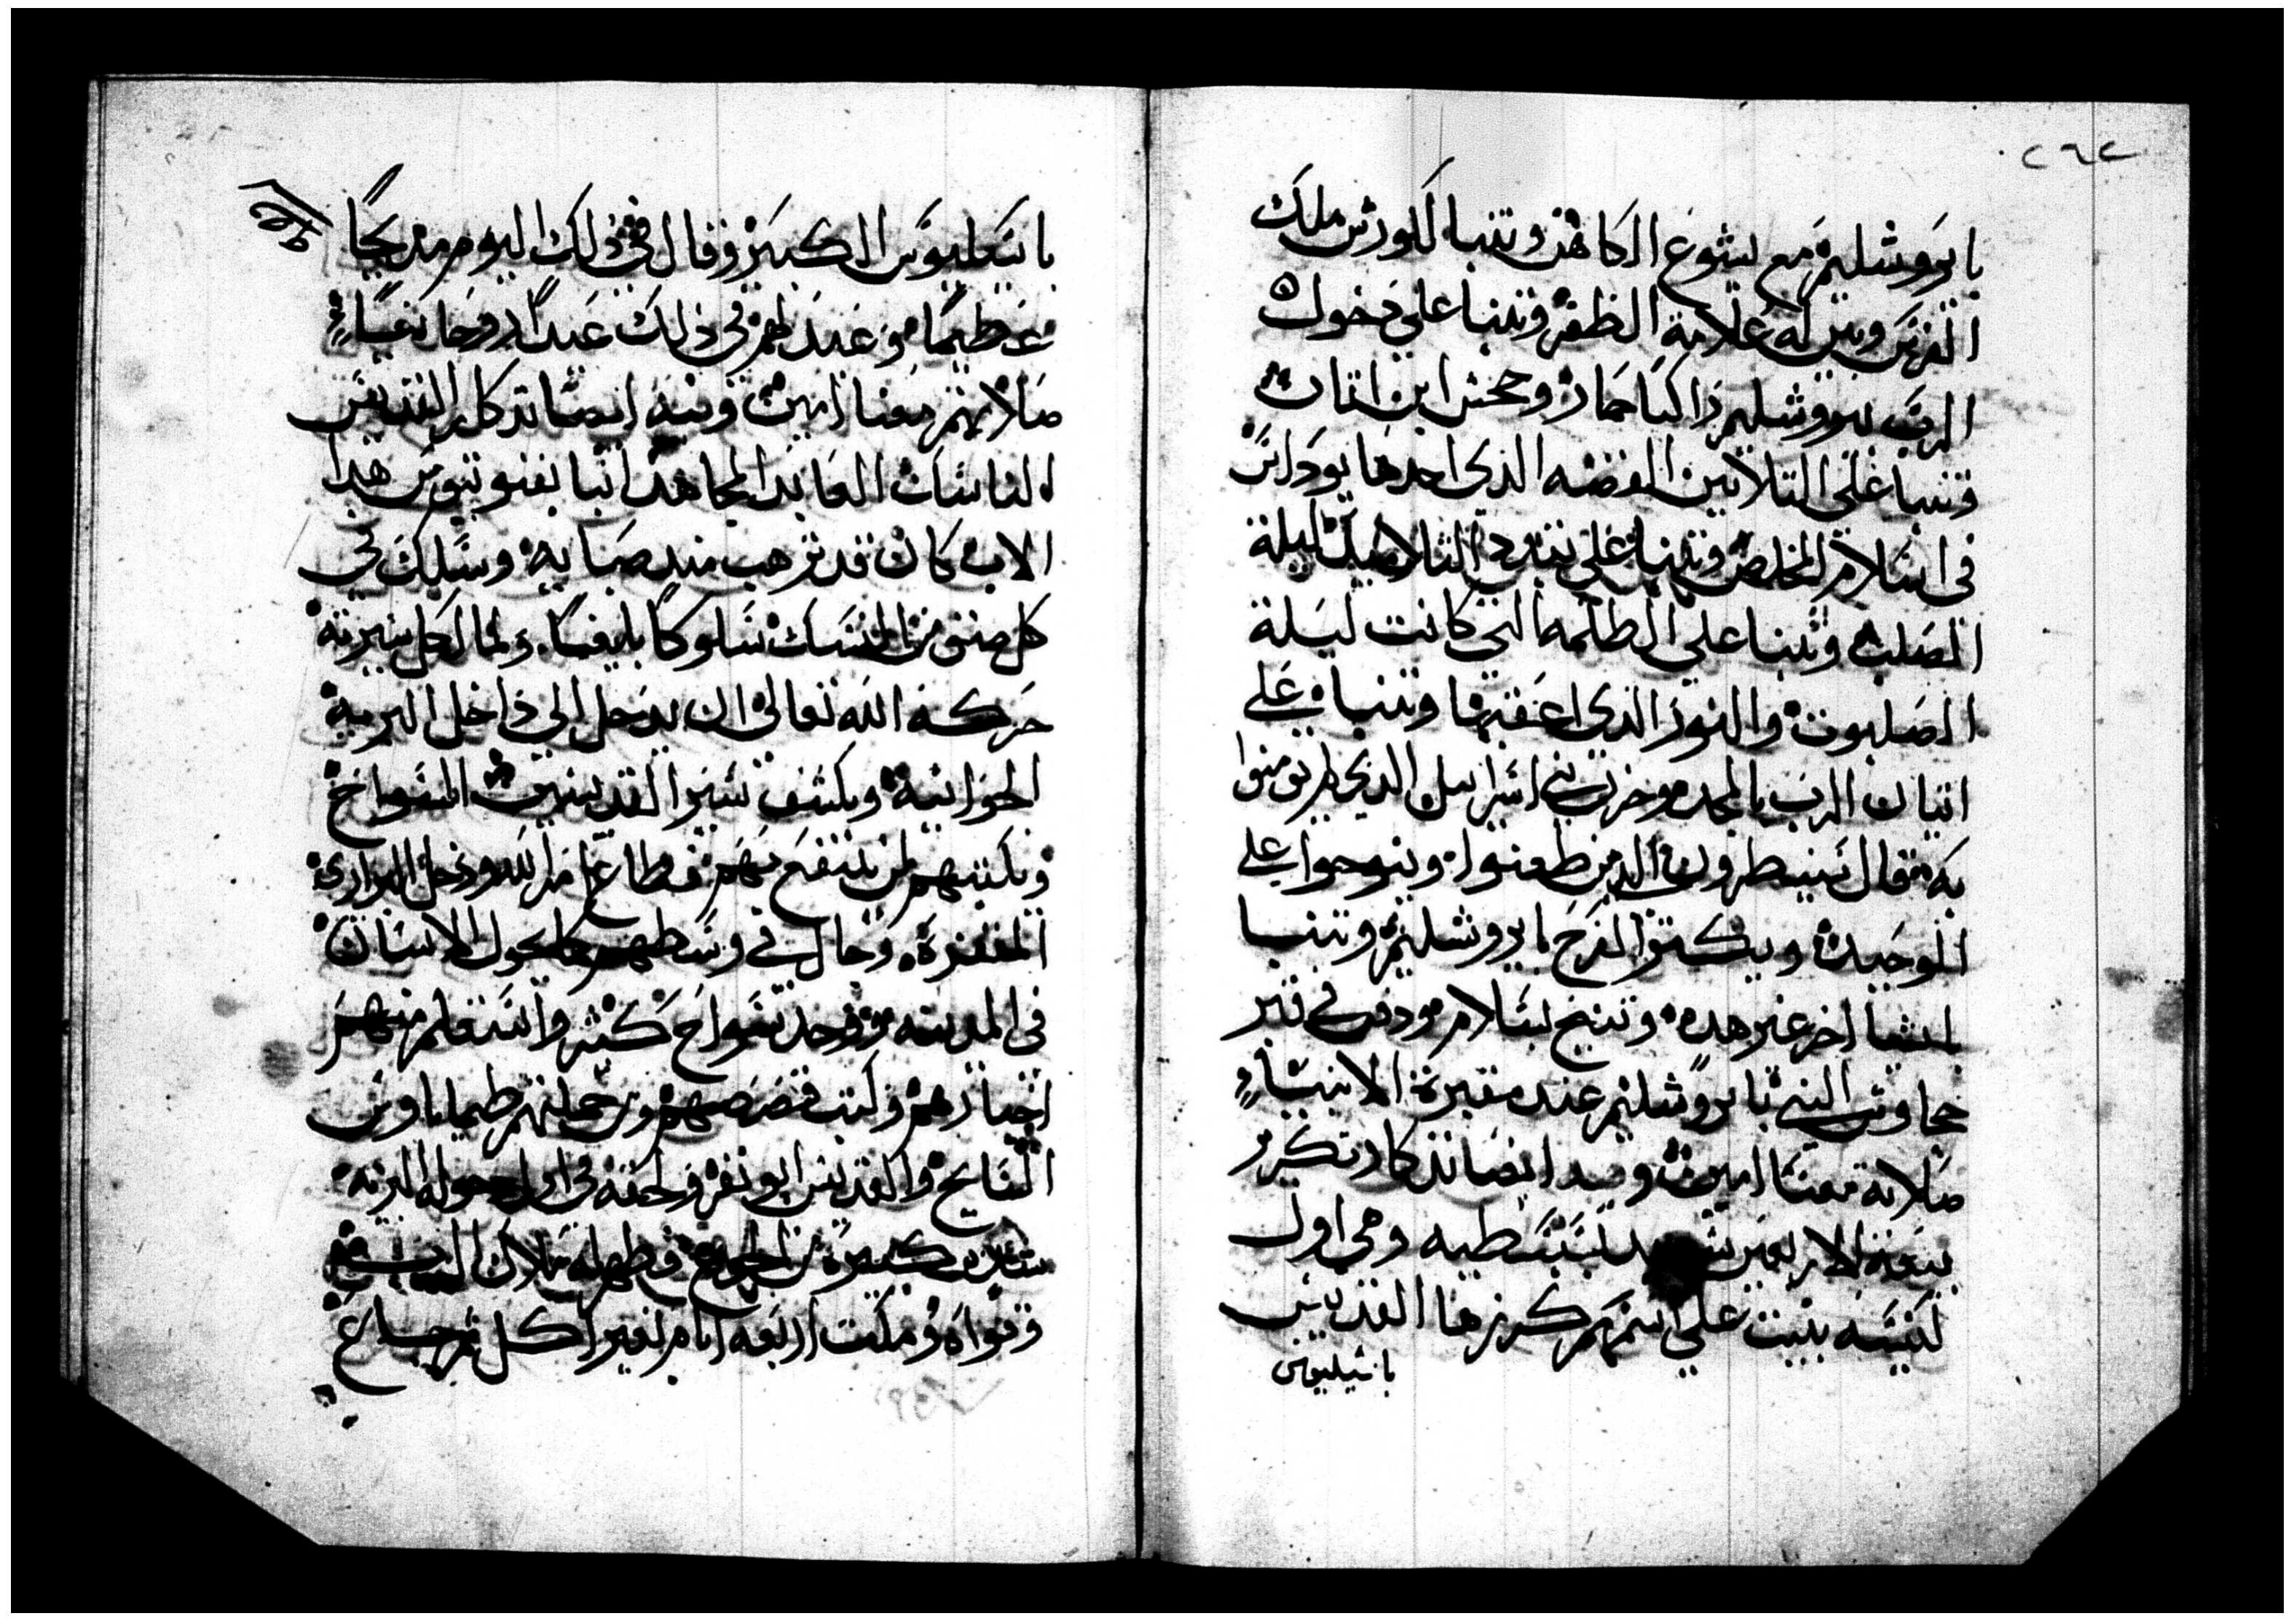 ٢٦٢
بايروشليم مع يشوع الكاهن وتنبا لكورش ملك
الفرس وبين له علامة الظفر وتنبا على دخول
الرب يروشليم راكبا حمار وجحش ابن اتان
وتنبا على التلاتين الفضه الذي اخدها يوداس
في اسلام المخلص وتنبا على تفرد التلاميد ليلة
الصلب وتنبا على الظلمه التي كانت ليلة
الصلبوت والنور الذي اعقبها وتنبا على
اتيان الرب بالمجد وحزن بني اسراييل الدي لم يومنوا
به فقال سينظرون الدين طعنوا وينوحوا على
الوحيد ويكتر الفرح بايروشليم وتنبا
باشيا اخر غير هده وتنيح بسلام ودفن في قبر
حجاوس النبي بايروشليم عند مقبرة الانبيا
صلاته معنا امين وفيه ايضا تدكار تكريز
بيعة الاربعين بسبسطيه وهي اول
كنيسه بنيت على اسمهم كرزها القديس
باسيليوس
باسيليوس الكبير وقال في ذلك اليوم مديحا
عظيما وعيد لهم في ذلك عيدا روحانيا
صلاتهم معنا امين وفيه ايضا تدكار القديس
الناسك العابد المجاهد انبا بفنوتيوس هدا
الاب كان قد ترهب مند صبايه وسلك في
كل صنف من النسك سلوكا بليغا ولما اكمل سيرته
حركه الله تعالى ان يدخل الي داخل البرية
الجوانية ويكشف سير القديسين السواح
ويكتبهم لمن ينتفع بهم فطاع امر الله ودخل البراري
المقفرة وجال في وسطهم كما يجول الانسان
في المدينه ووجد سواح كثير واستعلم منهم
اخبارهم وكتب قصصهم ومن جملتهم طيماتاوس
السايح والقديس ابو نفر ولحقه في اول دخوله البريه
شدايد كبيرة من الجوع فظهر له ملاك الرب
وقواه ومكت اربعه ايام بغير اكل ثم جاع